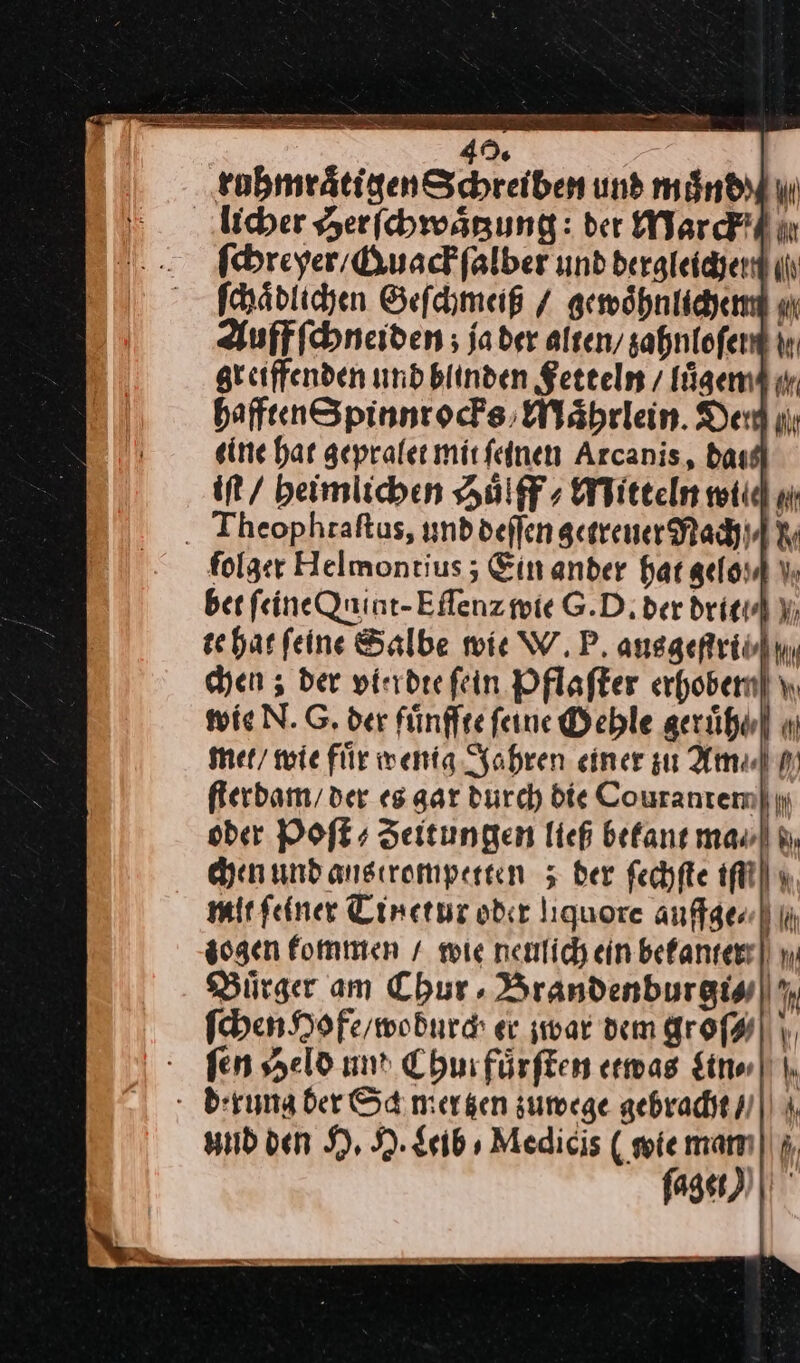 40.
ruhmråtigen Schreiben und můnd⸗
licher Herſchwåtzung: der Marck⸗
ſchreyer/Quackſalber und dergleichen
ſchådlichen Geſchmeiß / gewöhnlichem
Auffſchneiden; ja der alten/zahnloſen
greiffenden und blinden Fetteln / lůgem⸗
hafften Spinnrocks⸗Måhrlein. Der
eine hat gepralet mit ſeinen Arcanis, das
iſt / heimlichen Hůlff⸗Mitteln wie
Theophraſtus, und deſſen getreuer Nach⸗
folger Helmontius; Ein ander hat gelo⸗
bet ſeine Quint-Eſſenz wie G.D. der drit⸗
te hat ſeine Salbe wie W. P. ausgeſtri⸗
chen; der vierdte ſein Pflaſter erhoben
wie N. G. der fůnffte ſeine Oehle gerůh⸗
met/ wie fůr wenig Jahren einer zu Am⸗
ſterdam/der es gar durch die Couranten
oder Poſt⸗Zeitungen ließ bekant ma⸗
chen und austrompetten ; der ſechſte iſt
mit ſeiner Tinctur oder liquore auffge⸗
zogen kommen / wie neulich ein bekanter
Bůrger am Chur⸗Brandenburgi⸗
ſchen Hofe/wodurch er zwar dem groſ⸗
ſen Held und Churfůrſten etwas Lin⸗
derung der Schmertzen zuwege gebracht /
und den H. H. Leib⸗Medicis ( wie man
ſaget)